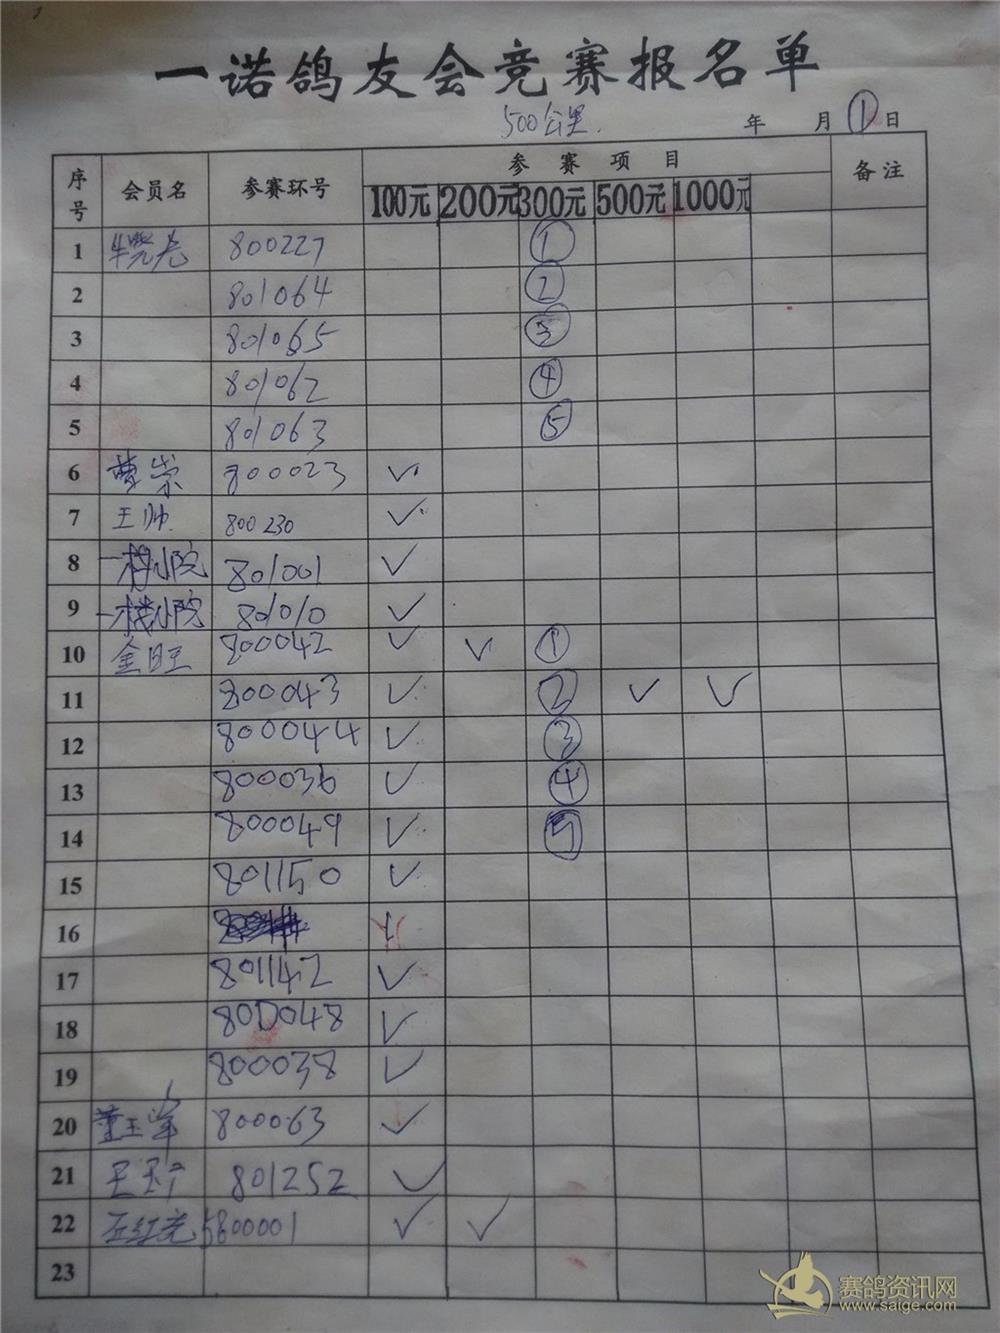 一诺鸽友会竞赛报名单
500公里. 年 月 ① 日
序号 会员名 参赛环号 参赛项目 备注
100元 200元 300元 500元 1000元
1 牛晓光 800227 ①
2 801064 ②
3 801065 ③
4 801062 ④
5 801063 ⑤
6 曹崇 800023 ✓
7 王帅 800230 ✓
8 一楼小院 801001 ✓
9 一楼小院 801010 ✓
10 金旺 800042 ✓ ✓ ①
11 800043 ✓ ② ✓ ✓
12 800044 ✓ ③
13 800036 ✓ ④
14 800049 ✓ ⑤
15 801150 ✓
16
17 801142 ✓
18 800048 ✓
19 800038 ✓
20 董玉峰 800063 ✓
21 801252 ✓
22 石红光 5800001 ✓ ✓
23
赛鸽资讯网
www.saige.com